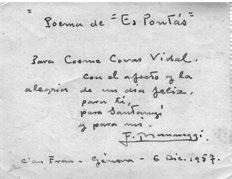 "Poema de "Es Pontás"
Para Cosme Covas Vidal,
con el afecto y la
alegría de un día feliz,
para ti,
para Santanyí
y para mí.
F.
Ca'n Frau - Génova - 6 Dic. 1957.